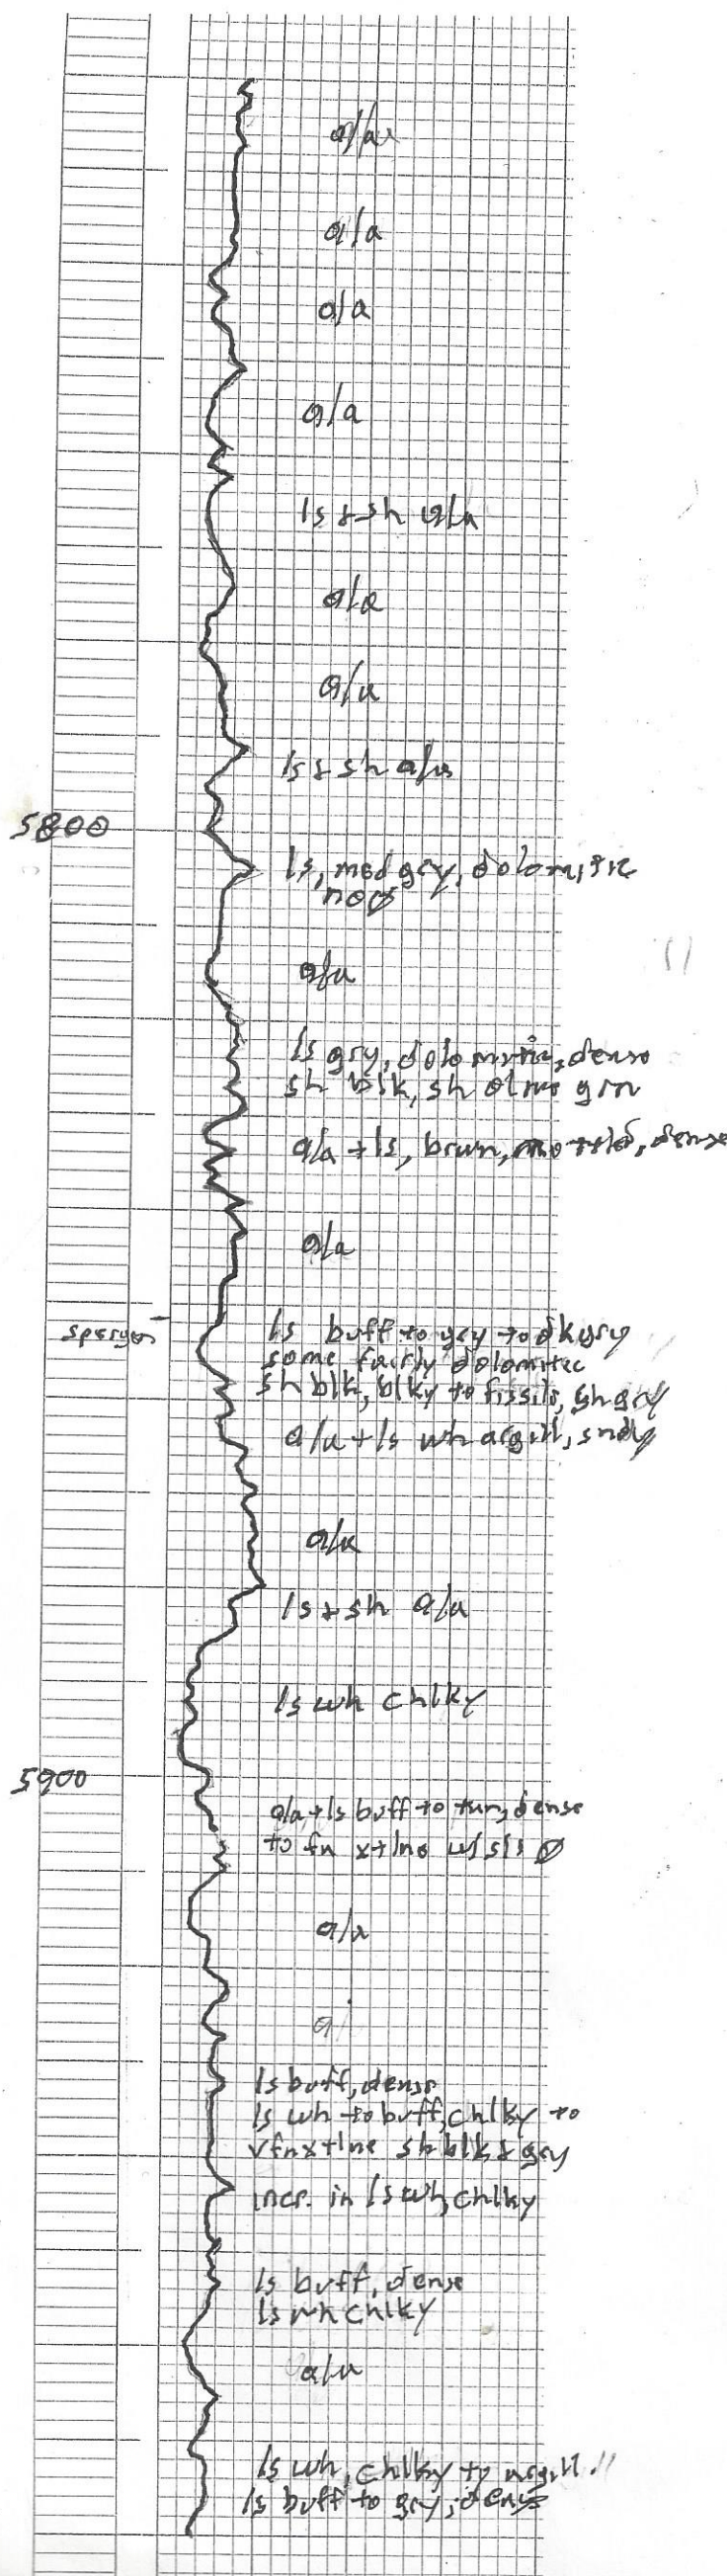 a/a
a/a
a/a
a/a
ls & sh a/a
a/a
a/a
ls & sh a/a
5800
ls, med gry, dolomitic
no ϕ
a/a
ls gry, dolomitic, dense
sh blk, sh olive grn
a/a + ls, brwn, mottled, dense
a/a
spergen
ls buff to gry to dk gry
some fairly dolomitic
sh blk, blky to fissile, sh gry
a/a + ls wh argill, sndy
a/a
ls & sh a/a
ls wh chlky
5900
a/a + ls buff to tan, dense
to fn xtlne w/ sls ϕ
a/a
a/
ls buff, dense
ls wh to buff, chlky to
vfnxtlne sh blk & gry
incr. in ls wh, chlky
ls buff, dense
ls wh chlky
a/a
ls wh, chlky to argill.
ls buff to gry, dense